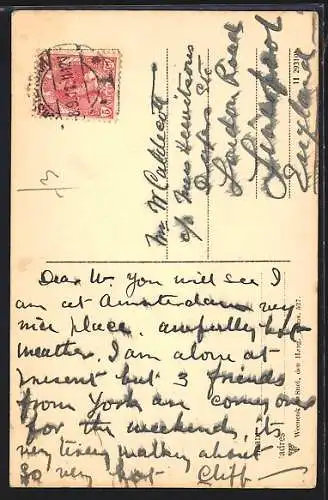 Mr W Caldecott
c/o Miss Hewitsons
London Road
Liverpool
England
11 29310
Dear W. You will see I
am at Amsterdam very
nice place, awfully hot
weather, I am alone at
present but 3 friends
from York are coming
for the weekend, its
very tiring walking about
so very hot Cliff
adres
Weenenk & Snel, den Haag